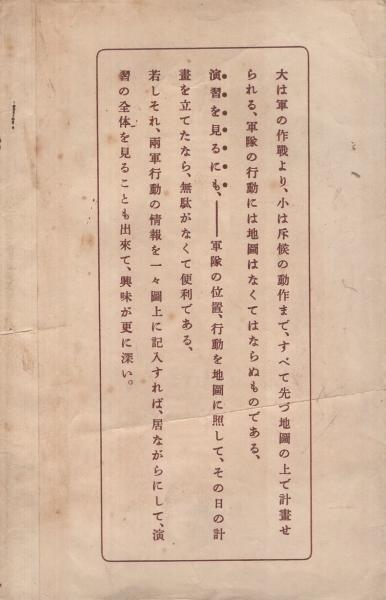 大は軍の作戰より、小は斥候の動作まで、すべて先づ地圖の上で計畫せ
られる、軍隊の行動には地圖はなくてはならぬものである、
演習を見るにも、――軍隊の位置、行動を地圖に照して、その日の計
畫を立てたなら、無駄がなくて便利である、
若しそれ、兩軍行動の情報を一々圖上に記入すれば、居ながらにして、演
習の全体を見ることも出來て、興味が更に深い。